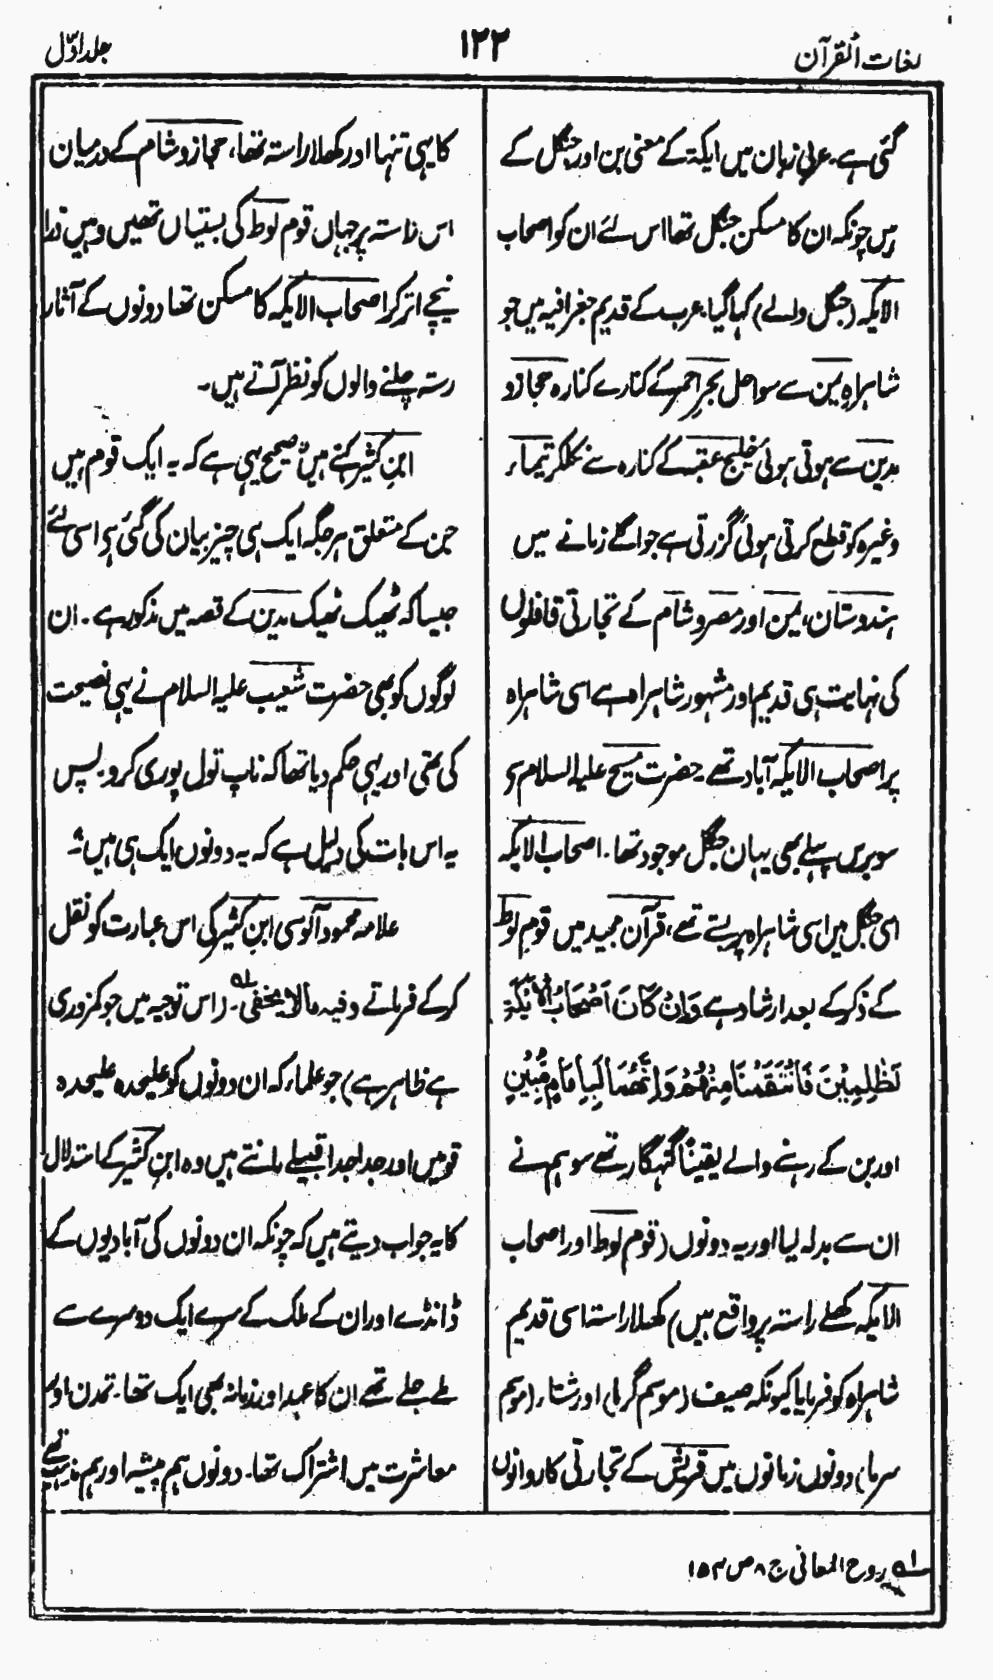 لغات القرآن
۱۲۲
جلد اوّل
گئی ہے۔ عربی زبان میں ایکۃ کے معنی بن اور جنگل کے
ہیں چونکہ ان کا مسکن جنگل تھا اس لئے ان کو اصحاب
الایکہ (جنگل والے) کہا گیا۔ عرب کے قدیم جغرافیہ میں جو
شاہراہِ یمن سے سواحل بحرِ احمر کے کنارے کنارہ حجاز و
مدین سے ہوتی ہوئی خلیج عقبہ کے کنارہ سے نکلکر تیماء،
وغیرہ کو قطع کرتی ہوئی گزرتی ہے جو اگلے زمانے میں
ہندوستان، یمن اور مصر و شام کے تجارتی قافلوں
کی نہایت ہی قدیم اور مشہور شاہراہ ہے اسی شاہراہ
پر اصحاب الایکہ آباد تھے۔ حضرت مسیح علیہ السلام سے
سو برس پہلے بھی یہاں جنگل موجود تھا۔ اصحاب الایکہ
اسی جنگل میں اسی شاہراہ پر بستے تھے، قرآن مجید میں قومِ لوط
کے ذکر کے بعد ارشاد ہے وَاِنْ كَانَ اَصْحَابُ الْاَيْكَةِ
لَظٰلِمِيْنَ فَانْتَقَمْنَا مِنْهُمْ وَاِنَّهُمَا لَبِاِمَامٍ مُّبِيْنٍ
اور بن کے رہنے والے یقیناً گنہگار تھے سو ہم نے
ان سے بدلہ لیا اور یہ دونوں (قوم لوط اور اصحاب
الایکہ کھلے راستہ پر واقع ہیں) کھلا راستہ اسی قدیم
شاہراہ کو فرمایا کیونکہ صیف (موسم گرما) اور شتاء (موسم
سرما) دونوں زمانوں میں قریش کے تجارتی کاروانوں
کا یہی تنہا اور کھلا راستہ تھا، حجاز و شام کے درمیان
اس راستہ پر جہاں قوم لوط کی بستیاں تھیں وہیں ذرا
نیچے اتر کر اصحاب الایکہ کا مسکن تھا دونوں کے آثار
رستہ چلنے والوں کو نظر آتے ہیں۔
ابنِ کثیر کہتے ہیں صحیح یہی ہے کہ یہ ایک قوم ہیں
جن کے متعلق ہر جگہ ایک ہی چیز بیان کی گئی ہے اسی لئے
جیسا کہ ٹھیک ٹھیک مدین کے قصہ میں مذکور ہے۔ ان
لوگوں کو بھی حضرت شعیب علیہ السلام نے یہی نصیحت
کی تھی اور یہی حکم دیا تھا کہ ناپ تول پوری کرو۔ پس
یہ اس بات کی دلیل ہے کہ یہ دونوں ایک ہی ہیں۔
علامہ محمود آلوسی ابن کثیر کی اس عبارت کو نقل
کر کے فرماتے وفیہ مالا یخفی لہ۔ (اس توجیہ میں جو کمزوری
ہے ظاہر ہے) جو علماء کہ ان دونوں کو علیحدہ علیحدہ
قومیں اور جدا جدا قبیلے مانتے ہیں وہ ابنِ کثیر کے استدلال
کا یہ جواب دیتے ہیں کہ چونکہ ان دونوں کی آبادیوں کے
ڈانڈے اور ان کے ملک کے سرے ایک دوسرے سے
ملے جلے تھے ان کا عہد اور زمانہ بھی ایک تھا۔ تمدن اور
معاشرت میں اشتراک تھا۔ دونوں ہم پیشہ اور ہم مذہب تھے
لہ روح المعانی ج ۸ ص ۱۵۳